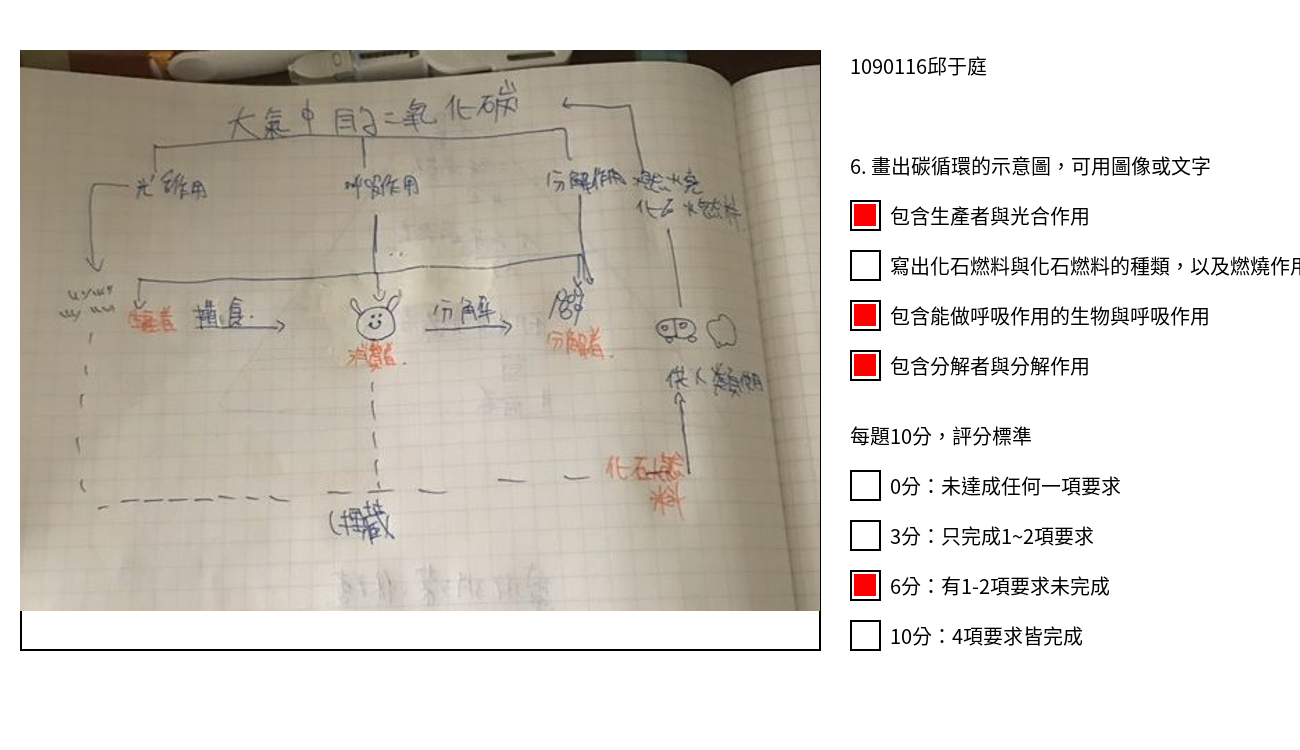 大氣中的二氧化碳
光合作用
呼吸作用
分解作用
燃燒
化石燃料
生產者
攝食
消費者
分解
分解者
供人類使用
化石燃料
(埋藏
1090116邱于庭
6. 畫出碳循環的示意圖，可用圖像或文字
包含生產者與光合作用
寫出化石燃料與化石燃料的種類，以及燃燒作用
包含能做呼吸作用的生物與呼吸作用
包含分解者與分解作用
每題10分，評分標準
0分：未達成任何一項要求
3分：只完成1~2項要求
6分：有1-2項要求未完成
10分：4項要求皆完成